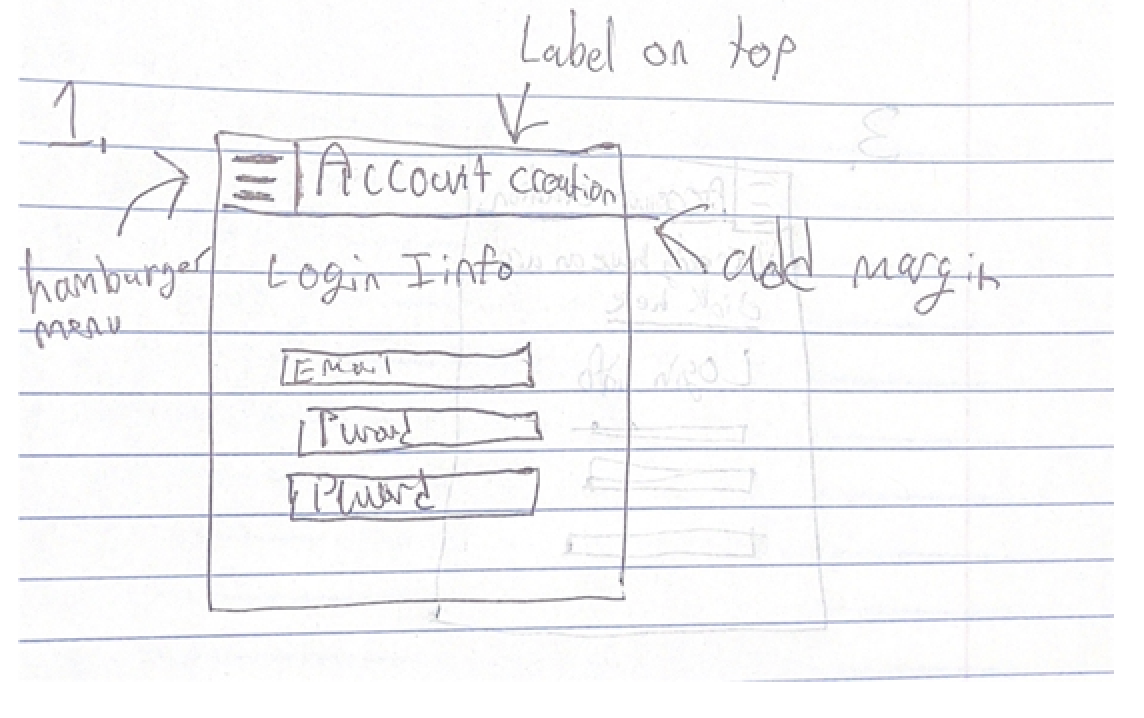 Label on top
1.
Account creation
hamburger
menu
add margin
Login Iinfo
Email